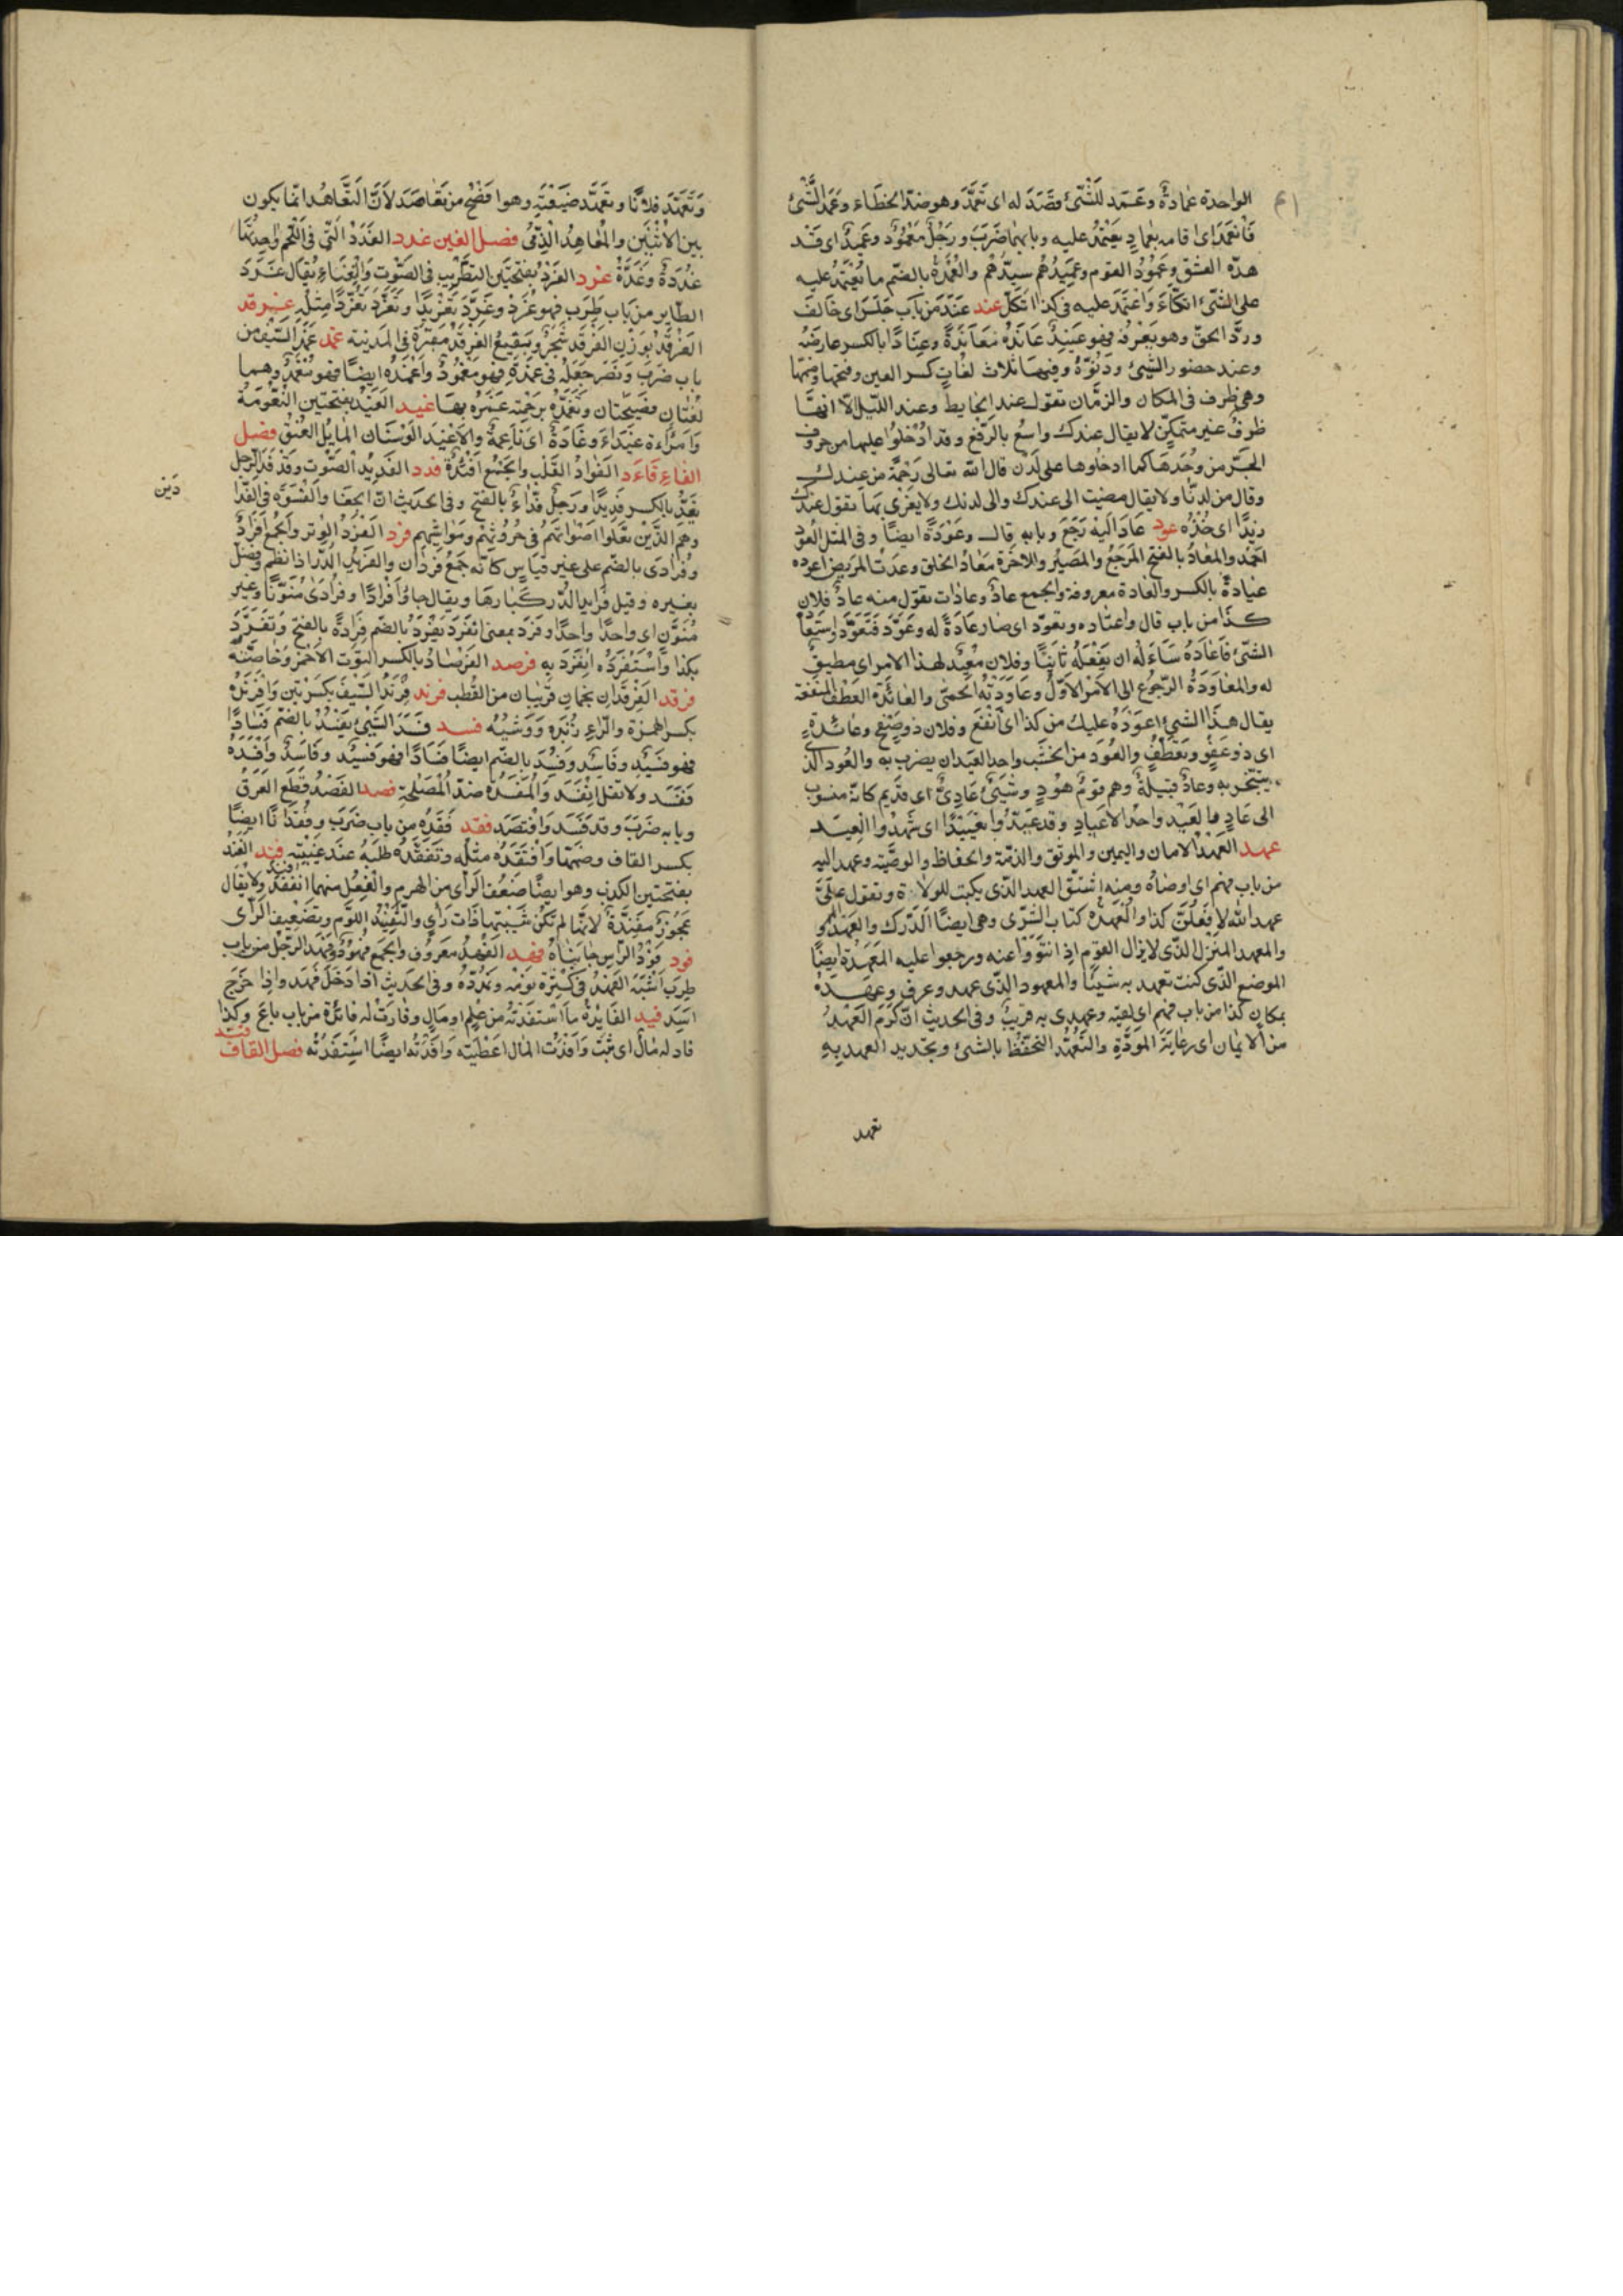 الواحدة عمادة وعَمَد للشئ قصَدَ له اى تَعَمَّدَ وهو ضدّ الخطاء وعَمَد الشئ
فانعَمَد اى اقامه بعماد يعتمد عليه وبابهما ضرَبَ ورجُل معمُود وعَميد اى قد
هدّه العشق وعَمُود القوم وعميدهم سيّدهم والعُمدة بالضم ما يُعتمد عليه
على الشئ اتكاء واعتمد عليه فى كذا اتكل عند عَنَدَ من باب جلسَ اى خالفَ
وردّ الحق وهو يعرفه فهو عنيد عانَدَه معاندةً وعنادًا بالكسر عارضَه
وعند حضور الشئ ودنوّه وفيها ثلاث لغات كسر العين وفتحها وضمّها
وهى ظرف فى المكان والزمان تقول عند الحايط وعند الليل الا انها
ظرف غير متمكن لا يقال عندك واسع بالرفع وقد ادخلوا عليها من حروف
الجر من وحدها كما ادخلوها على لدن قال الله تعالى رحمة من عندك
وقال من لدنا ولا يقال مضيت الى عندك والى لدنك ولا يغزى بها تقول عندك
زيدًا اى خذه عود عاد اليه رَجَعَ وبابه قال وعَوْدَةً ايضًا وفى المثل العَود
احمد والمعاد بالفتح المرجع والمصير والاخرة معاد الخلق وعدت المريض اعوده
عيادة بالكسر والعادة معروفة والجمع عاد وعادات تقول منه عاد فلان
كذا من باب قال واعتاده وتعوّد اى صار عادةً له وعَوّد فتعوّد واستعا
الشئ فاعاده ساءله ان يفعله ثانيًا وفلان معيد لهذا الامر اى مطيق
له والمعاودة الرجوع الى الامر الاول وعاودته الحمى والعائدة العطف المنفعة
يقال هذا الشئ اعوَد عليك من كذا اى انفع وفلان ذو صفح وعائدة
اى ذو عفو وتعطف والعود من الخشب واحد العيدان يضرب به والعود الذى
يتبخر به وعاد قبيلة وهم قوم هود وشئ عادىّ اى قديم كانه منسوب
الى عاد والعيد واحد الاعياد وقد عيّدوا تعييدًا اى شهدوا العيد
عهد العهد الامان واليمين والموثق والذمة والحفاظ والوصية وعهد اليه
من باب فهم اى اوصاه ومنه اشتق العهد الذى يكتب للولاة وتقول علىّ
عهد الله لافعلن كذا والعهدة كتاب الشرى وهى ايضا الدرك والعهد
والمعهد المنزل الذى لا يزال القوم اذا انتووا عنه ورجعوا عليه المعهدة ايضًا
الموضع الذى كنت تعهد به شيئًا والمعهود الذى عهد وعرف وعهده
بمكان كذا من باب فهم اى لقيه وعهدى به قريب وفى الحديث ان كرم العهد
من الايمان اى رعاية المودة والتعهد التحفظ بالشئ وتجديد العهد به
تعهد
وتعهّد فلانًا وتعهّد ضيعته وهو افصح من تعاهد لانّ التعاهد انما يكون
بين الاثنين والمعاهد الذمى فصل الغين غدد الغدد التى فى اللحم واحدتها
غددة وغدّة غرد الغَرَد بفتحتين التطريب فى الصوت والغناء يقال غرد
الطاير من باب طرب فهو غرد وغرّد تغريدًا وتغرّد تغرّدًا مثله غرقد
الغرقد بوزن الفرقد شجر وبقيع الغرقد مقبرة فى المدينة غمد غمد السيف من
باب ضرب ونصر جعله فى غمده فهو مغمود واغمده ايضًا فهو مغمد وهما
لغتان فصيحتان وتغمّده برحمته غمره بها غيد الغيد بفتحتين النعومة
وامراءة غيداء وغادة اى ناعمة والاغيد الوسنان المايل العنق فصل
الفاء فاءد الفواد القلب والجمع افئدة فدد الفديد الصوت وقد فدّ الرجل
يفدّ بالكسر فديدًا ورجل فدّاد بالفتح وفى الحديث ان الجفا والقسوة فى الفدا
دين
وهم الذين تعلوا اصواتهم فى حروثهم ومواشيهم فرد الفرد الوتر والجمع افراد
وفرادى بالضم على غير قياس كانه جمع فردان والفريد الدرّ اذا نظم وفصل
بغيره وقيل فرايد الدر كبارها ويقال جاؤا افرادًا وفرادى منوّنًا وغير
منوّن اى واحدًا واحدًا وفرد بمعنى انفرد يفرد بالضم فرادة بالفتح وتفرّد
بكذا واستفرده انفرد به فرصد الفرصاد بالكسر التوت الاحمر وخاصته
فرقد الفرقدان نجمان قريبان من القطب فرند فرند السيف بكسرتين وافرنده
بكسر الهمزة والراء ربده ووشيه فسد فسد الشئ يفسد بالضم فسادًا
فهو فسيد وفاسد وفسد بالضم ايضًا فسادًا فهو فسيد وفاسد وافسده
ففسد ولا تقل انفسد والمفسدة ضد المصلحة فصد الفصد قطع العرق
وبابه ضرب وقد فصد وافتصد فقد فقده من باب ضرب وفقدانًا ايضًا
بكسر القاف وضمها وافتقده مثله وتفقده طلبه عند غيبته فند الفند
بفتحتين الكذب وهو ايضًا ضعف الراى من الهرم والفعل منهما افند ولا يقال
عجوز مفندة لانها لم تكن شبيبتها ذات راى والتفنيد اللوم وتضعيف الراى
فود فود الراس جانباه فهد الفهد معروف والجمع فهود وفهد الرجل من باب
طرب اشبه الفهد فى كثرة نومه وتمدده وفى الحديث اذا دخل فهد واذا خرج
اسد فيد الفايدة ما استفدته من علم او مال وفادت له فائدة من باب باع وكذا
فاد له مال اى ثبت وافدت المال اعطيته وافدته ايضًا استفدته فصل القاف